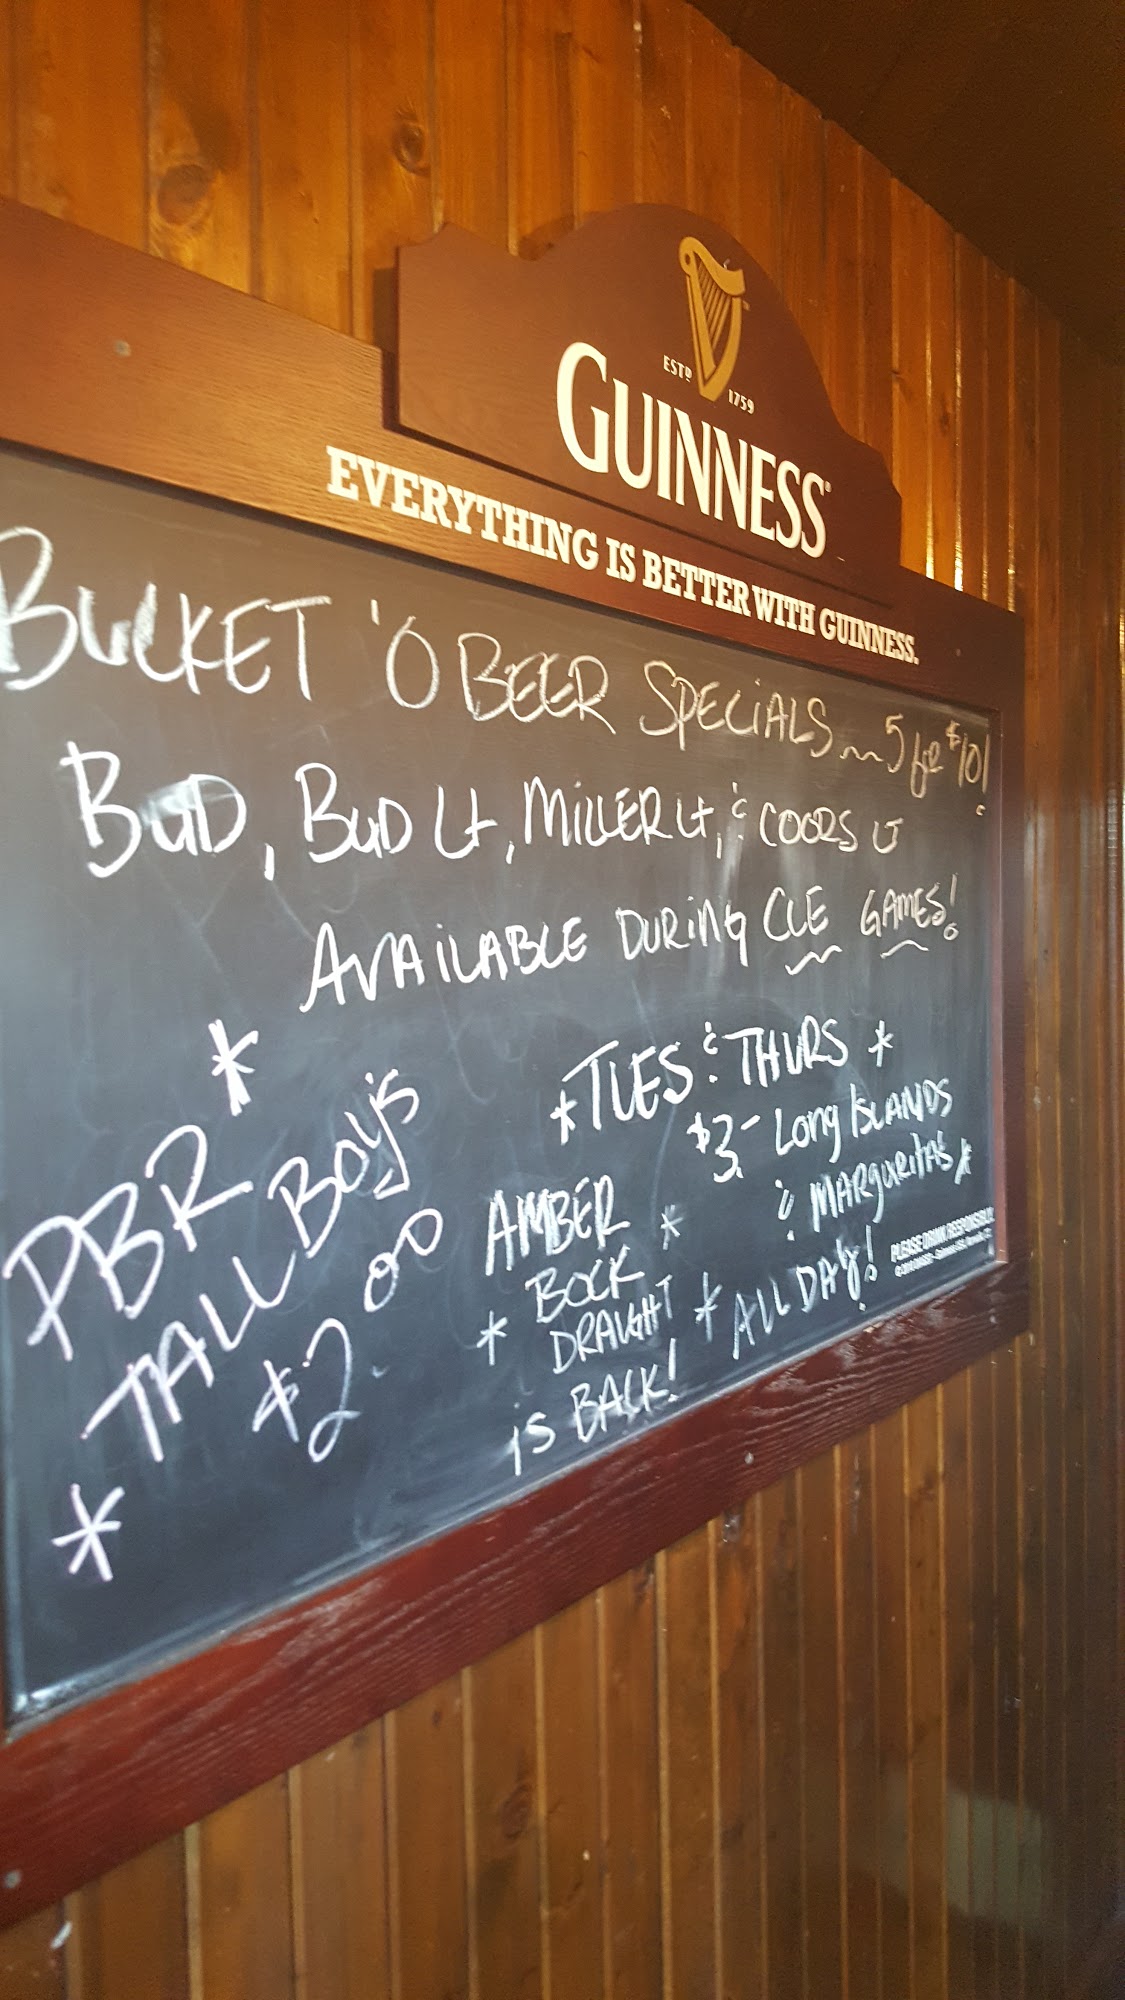 ESTD 1759
GUINNESS®
EVERYTHING IS BETTER WITH GUINNESS.
BUCKET 'O BEER SPECIALS... 5 for $10!
BUD, BUD Lt, MILLER Lt, & COORS LT
AVAILABLE DURING CLE GAMES!
*
PBR
TALL BOY'S
$2.00
*
AMBER *
BOCK
* DRAUGHT
is BACK!
*TUES & THURS *
$3.- Long ISLANDS
& MARGARITAS *
* ALL DAY!
PLEASE DRINK RESPONSIBLY.